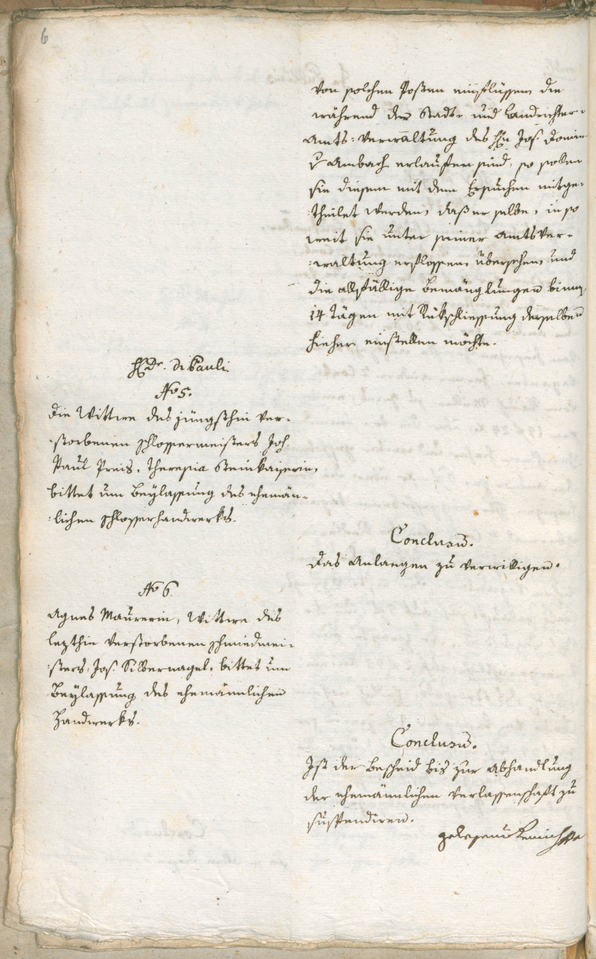 6
von solchen Posten einflüssen, die
während der Stadt- und Landrichter-
Amts-Verwaltung des Hn Jos. Domin:
v Ambach erlauffen sind, so sollen
sie diesem mit dem Ersuchen mitge-
theilet werden, daß er selbe, in so
weit sie unter seiner Amtsver-
waltung erflossen, übersehen, und
die allfällige Bemänglungen binnen
14 Tägen mit Rükschliessung derselben
hieher einstellen möchte.
Hr. Dr. di Pauli
No 5.
Die Wittwe des jüngsthin ver-
storbenen Schlossermeisters Joh.
Paul Preis, Theresia Steinkaiserin,
bittet um Beylassung des ehemän-
lichen Schlosserhandwerks.
Conclusū.
Das Anlangen zu verwilligen.
No 6.
Agnes Maurerin, Wittwe des
lezthin verstorbenen Schmiedmei-
sters Jos. Silbernagel, bittet um
Beylassung des ehemännlichen
Handwerks.
Conclusū.
Ist der Bescheid bis zur Abhandlung
der ehemännlichen Verlassenschaft zu
suspendiren.